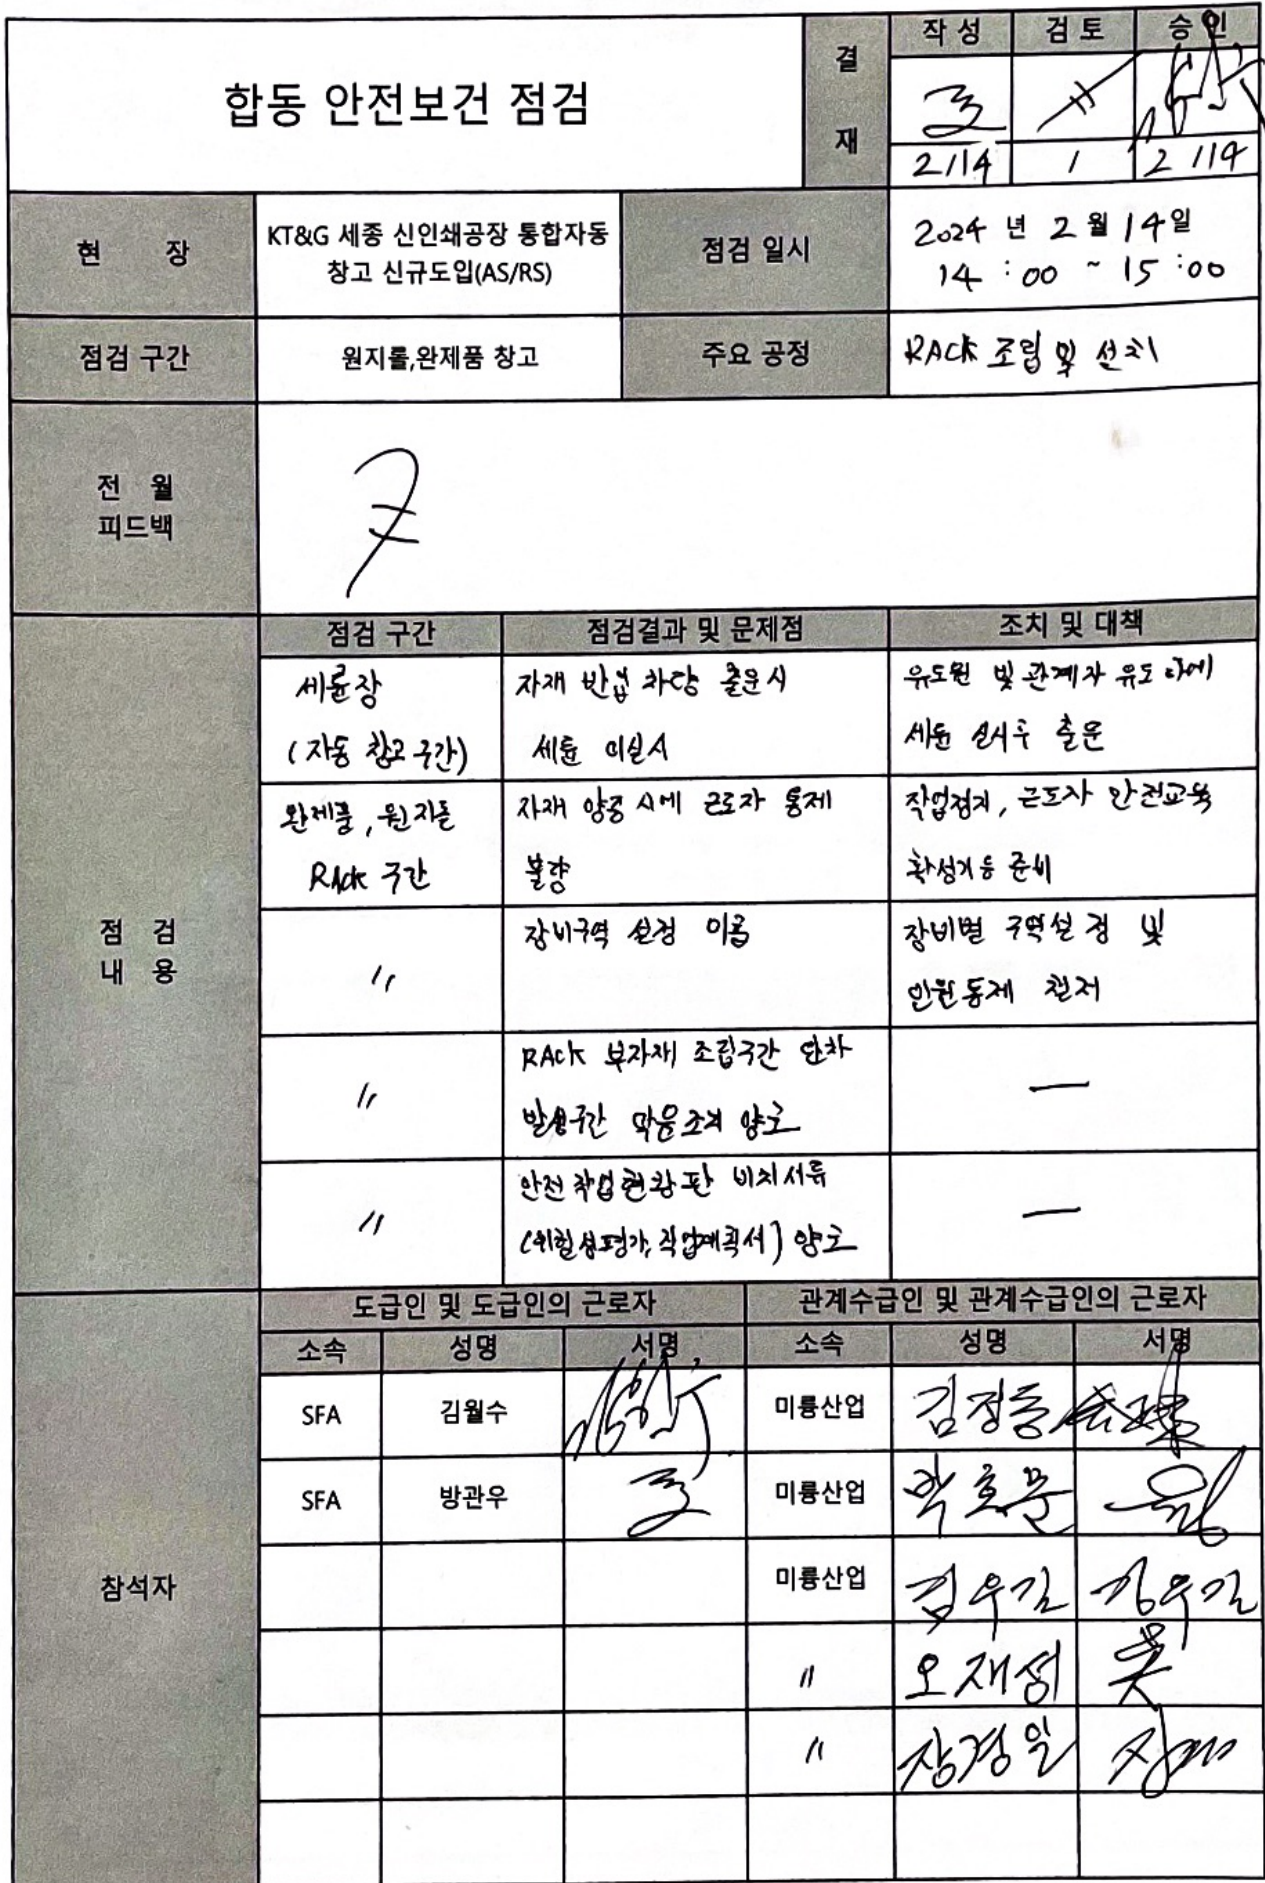 합동 안전보건 점검
결재
작성 검토 승인
2/14 / 2/14
현 장
KT&G 세종 신인쇄공장 통합자동
창고 신규도입(AS/RS)
점검 일시
2024 년 2 월 14일
14 : 00 ~ 15 : 00
점검 구간
원지롤,완제품 창고
주요 공정
RACK 조립 및 설치
전 월
피드백
점 검
내 용
점검 구간 점검결과 및 문제점 조치 및 대책
세륜장
(자동 창고 구간)
자재 반입 차량 출문시
세륜 미실시
유도원 및 관계자 유도하에
세륜 실시후 출문
완제품, 원지롤
RACK 구간
자재 양중시에 근로자 통제
불량
작업정지, 근로자 안전교육
준비
〃
장비구역 설정 미흡
장비별 구역설정 및
인원통제 철저
〃
RACK 부자재 조립구간 단차
발생구간 조치 양호
—
〃
안전작업현황판 비치서류
(위험성평가, 작업계획서) 양호
—
참석자
도급인 및 도급인의 근로자 관계수급인 및 관계수급인의 근로자
소속 성명 서명 소속 성명 서명
SFA 김월수 미륭산업 김정동
SFA 방관우 미륭산업 박호문
미륭산업 김우길 김우길
〃 오재성
〃 장경일